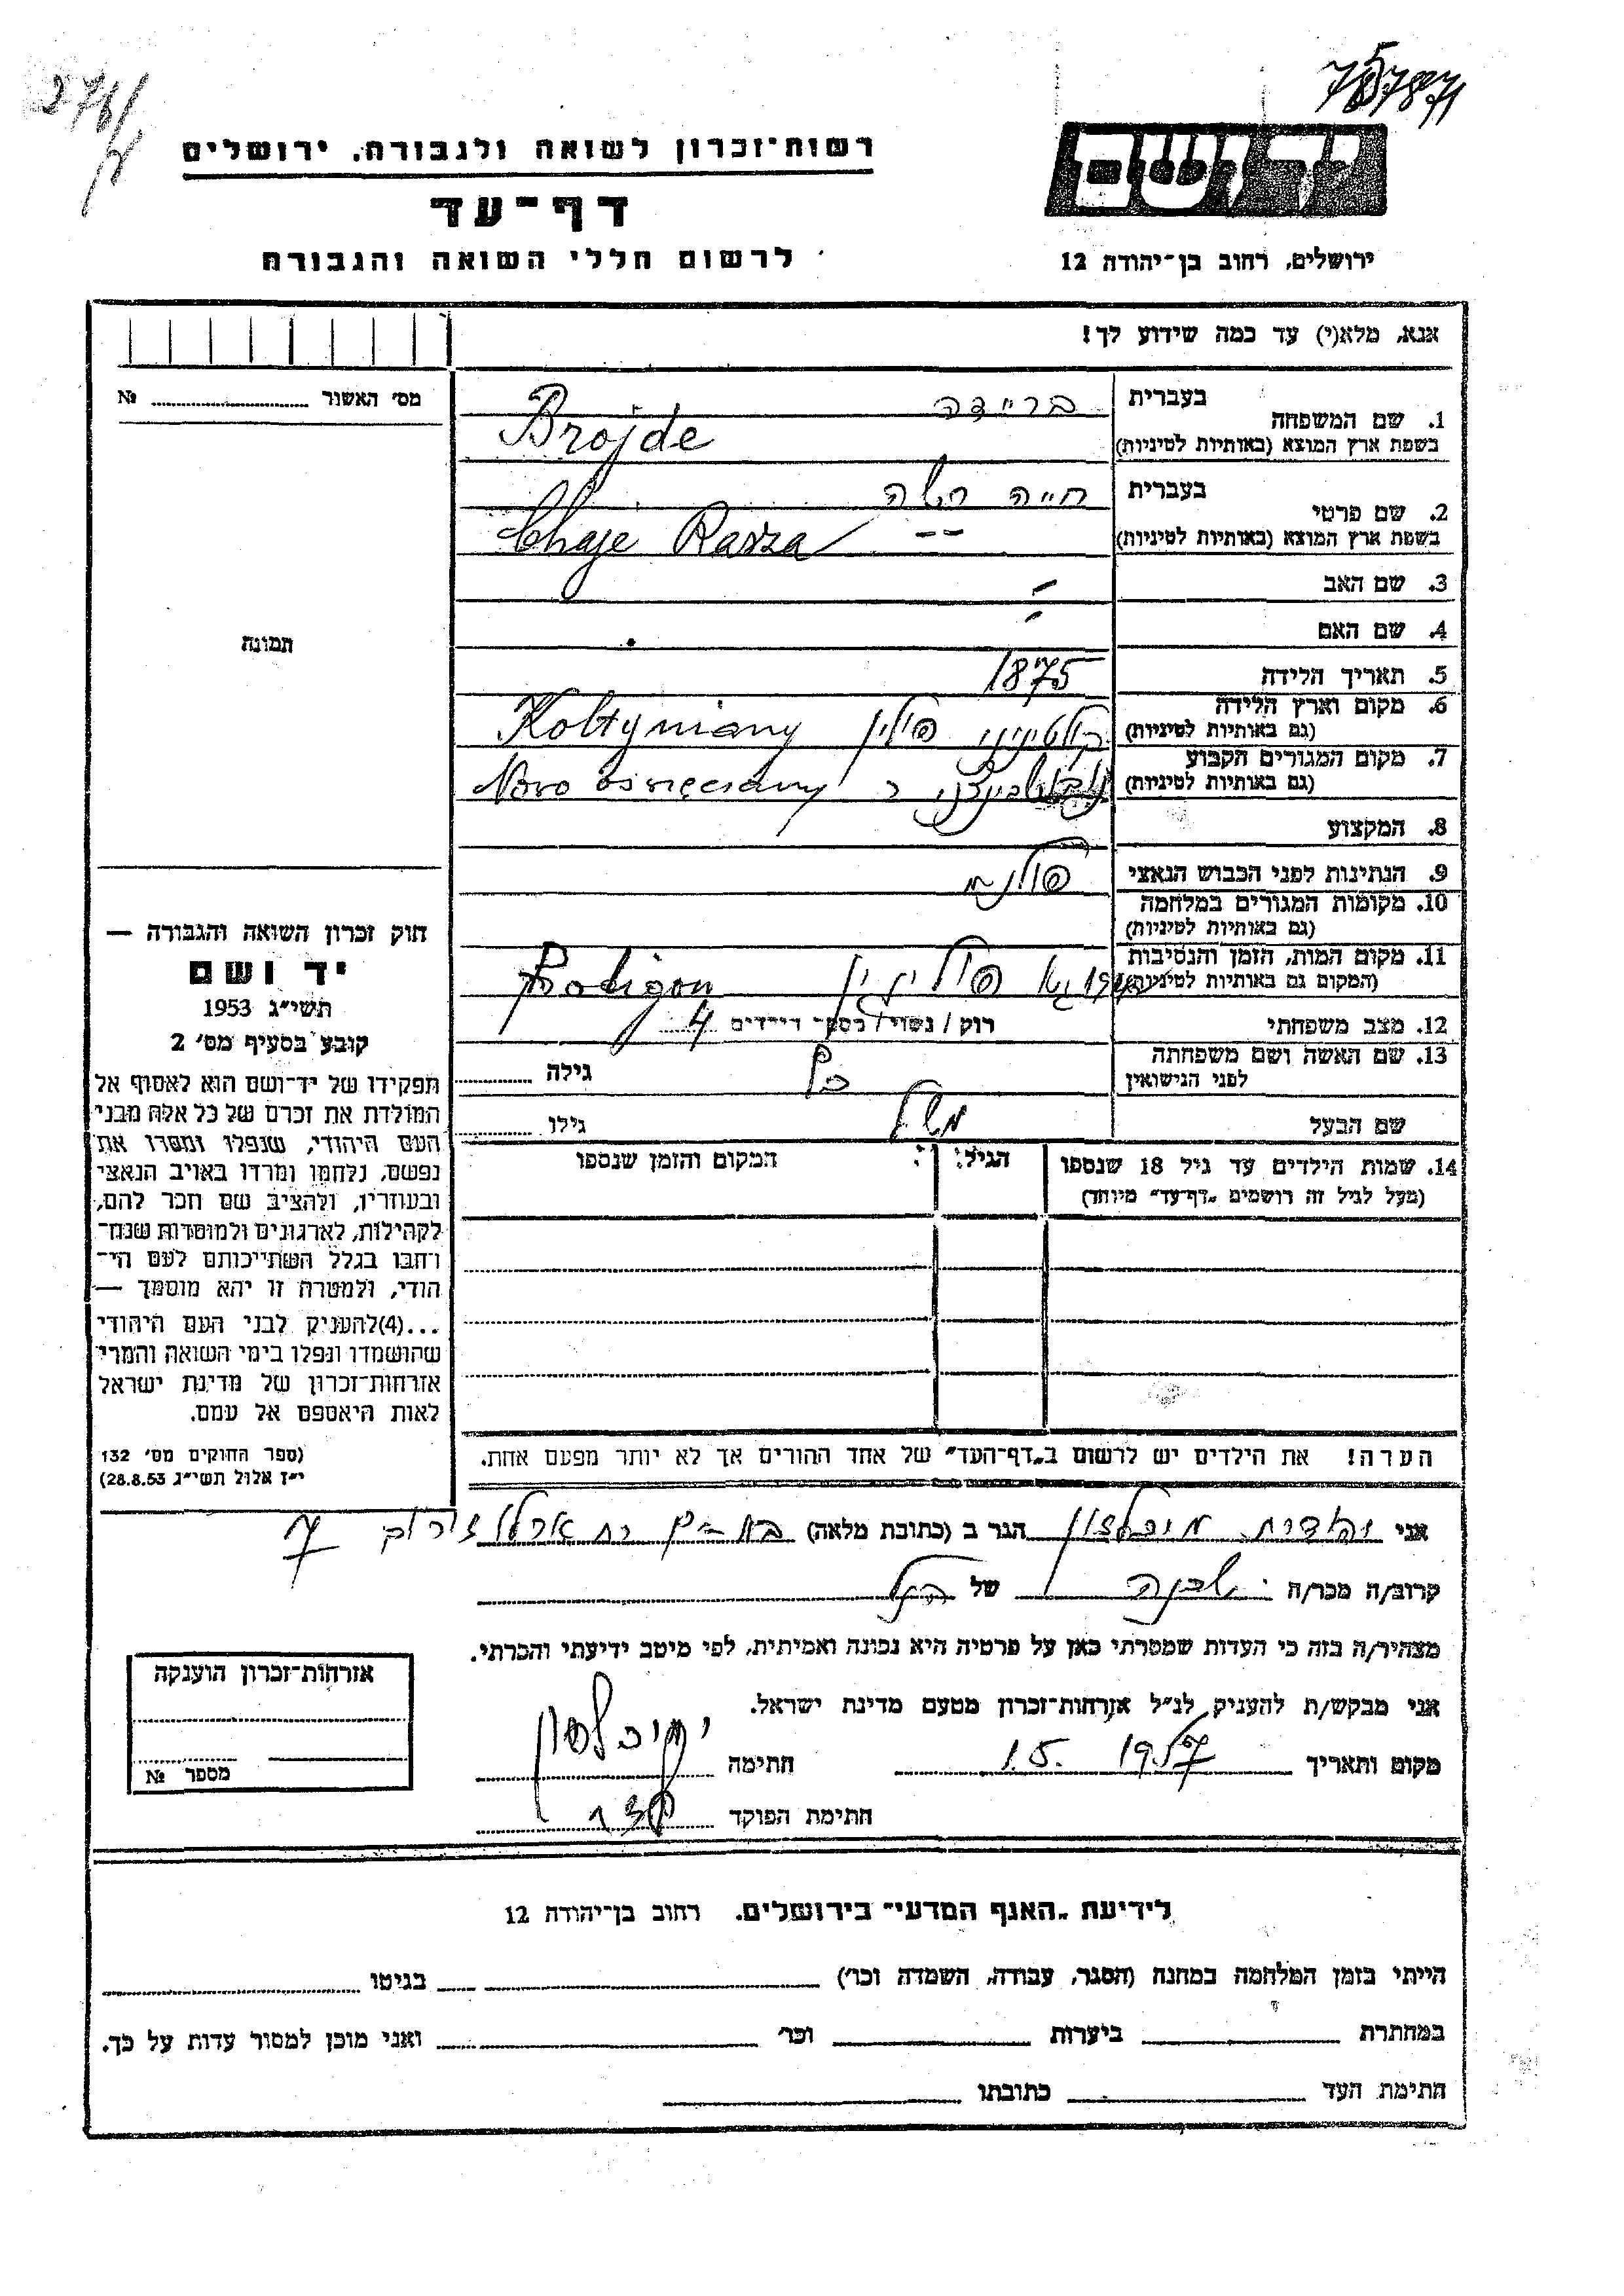 רשות־זכרון לשואה ולגבורה, ירושלים
דף־עד
לרשום חללי השואה והגבורה
יד ושם
ירושלים, רחוב בן־יהודה 12
אנא, מלא(י) עד כמה שידוע לך!
מס' האשור № 
תמונה
1. שם המשפחה
בעברית ברײדה
בשפת ארץ המוצא (באותיות לטיניות) Brojde
2. שם פרטי
בעברית חייה
בשפת ארץ המוצא (באותיות לטיניות) Chaje
3. שם האב –
4. שם האם –
5. תאריך הלידה 1875
6. מקום וארץ הלידה
(גם באותיות לטיניות) פולין Koltyniany
7. מקום המגורים הקבוע
(גם באותיות לטיניות) Novo
8. המקצוע
9. הנתינות לפני הכבוש הנאצי
10. מקומות המגורים במלחמה
(גם באותיות לטיניות)
11. מקום המות, הזמן והנסיבות
(המקום גם באותיות לטיניות)
12. מצב משפחתי רוק / נשוי / מספר הילדים 4
13. שם האשה ושם משפחתה
לפני הנישואין גילה
שם הבעל גילו
14. שמות הילדים עד גיל 18 שנספו הגיל: המקום והזמן שנספו
(מעל לגיל זה רושמים „דף־עד” מיוחד)
הערה! את הילדים יש לרשום ב„דף־העד” של אחד ההורים אך לא יותר מפעם אחת.
חוק זכרון השואה והגבורה —
יד ושם
תשי״ג 1953
קובע בסעיף מס' 2
תפקידו של יד־ושם הוא לאסוף אל
המולדת את זכרם של כל אלה מבני
העם היהודי, שנפלו ומסרו את
נפשם, נלחמו ומרדו באויב הנאצי
ובעוזריו, ולהציב שם וזכר להם,
לקהילות, לארגונים ולמוסדות שנח־
רבו בגלל השתייכותם לעם הי־
הודי, ולמטרה זו יהא מוסמך —
...(4)להעניק לבני העם היהודי
שהושמדו ונפלו בימי השואה והמרי
אזרחות־זכרון של מדינת ישראל
לאות היאספם אל עמם.
(ספר החוקים מס' 132
י״ז אלול תשי״ג 28.8.53)
אני יהודית מיכלסון הגר ב (כתובת מלאה) בת־ים רח ארלוזורוב 7
קרוב/ה מכר/ה שכנה של הנ״ל
מצהיר/ה בזה כי העדות שמסרתי כאן על פרטיה היא נכונה ואמיתית, לפי מיטב ידיעתי והכרתי.
אני מבקש/ת להעניק לנ״ל אזרחות־זכרון מטעם מדינת ישראל.
מקום ותאריך 1.5. 1957 חתימה י מיכלסון
חתימת הפוקד
אזרחות־זכרון הוענקה
מספר №
לידיעת „האגף המדעי” בירושלים. רחוב בן־יהודה 12
הייתי בזמן המלחמה במחנה (הסגר, עבודה, השמדה וכו') בגיטו
במחתרת ביערות וכו' ואני מוכן למסור עדות על כך.
חתימת העד כתובתו